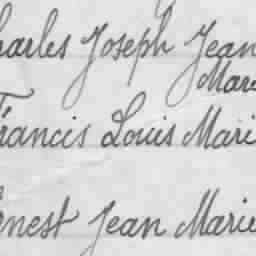 harles Joseph Jean
Mari
Francis Louis Marie
rnest Jean Marie